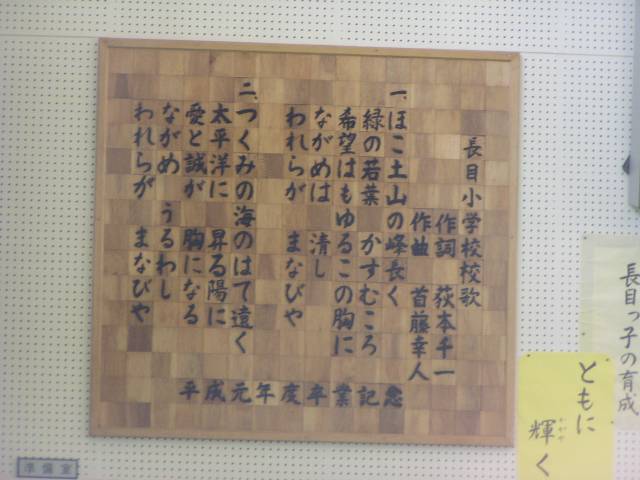 長目小学校校歌
作詞 荻本千一
作曲 首藤幸人
一、ほこ土山の峰長く
緑の若葉 かすむころ
希望はもゆるこの胸に
ながめは 清し
われらが まなびや
二、つくみの海のはて遠く
太平洋に 昇る陽に
愛と誠が 胸になる
ながめ うるわし
われらが まなびや
平成元年度卒業記念
長目っ子の育成
ともに
輝く
かがや
準備室